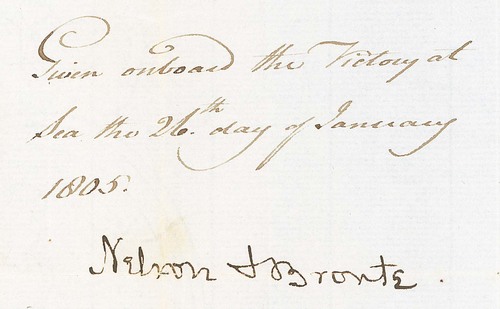 Given onboard the Victory at
Sea the 26.th day of January
1805.
Nelson & Bronte .